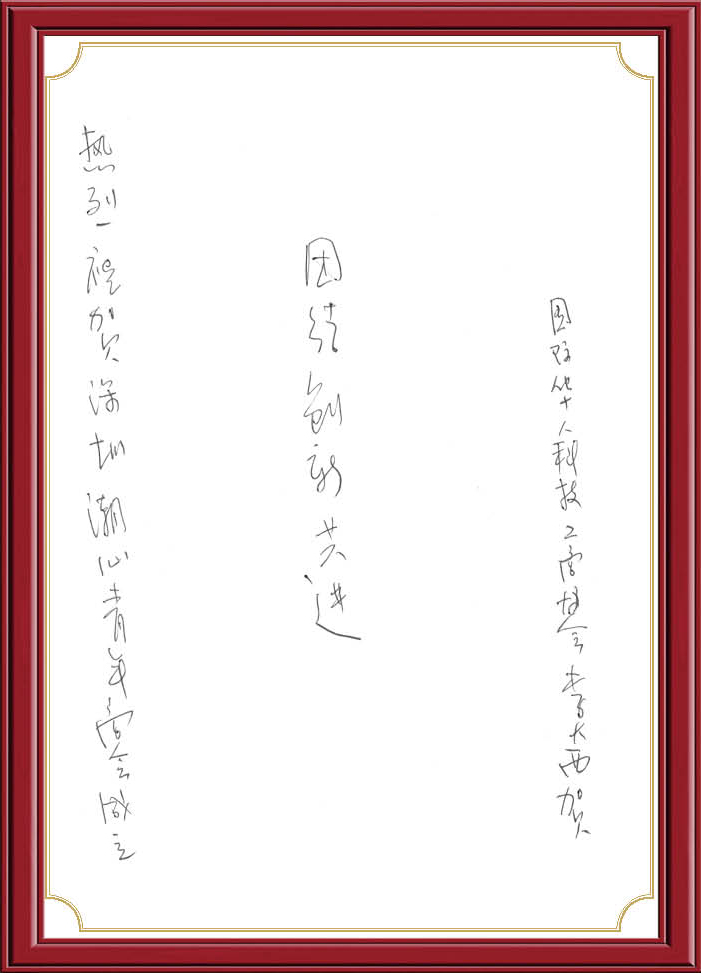 热烈祝贺深圳潮汕青年商会成立
团结创新共进
国际华人科技工商协会李大西贺